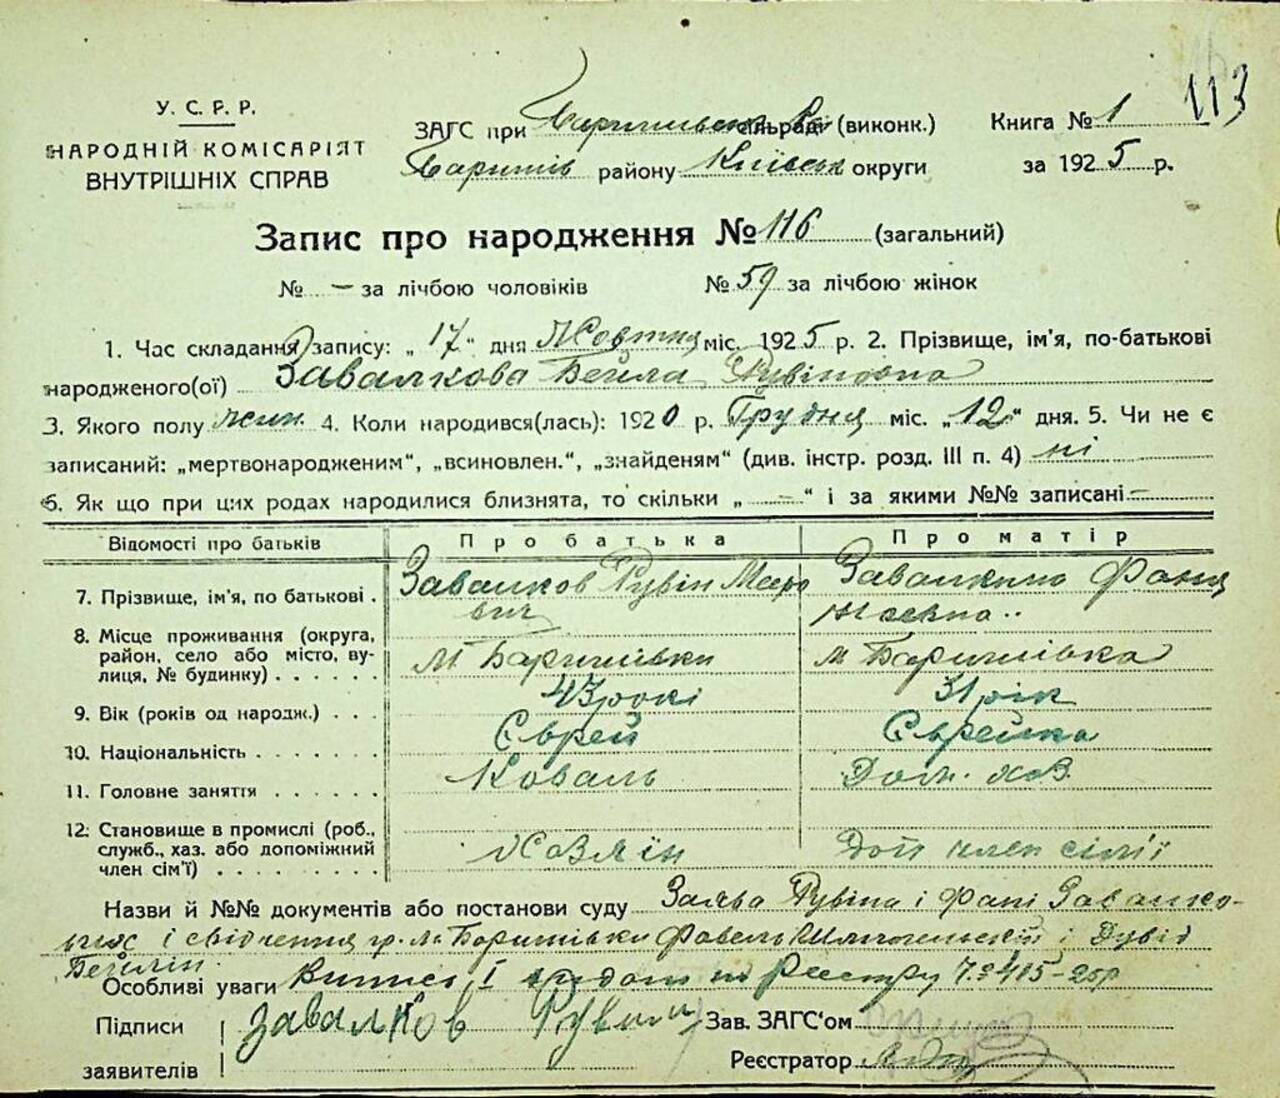 113
У. С. Р. Р.
НАРОДНІЙ КОМІСАРІЯТ
ВНУТРІШНІХ СПРАВ
ЗАГС при сільраді (виконк.)
Баришів району Київськ округи
Книга № 1
за 1925 р.
Запис про народження № 116 (загальний)
№ – за лічбою чоловіків № 59 за лічбою жінок
1. Час складання запису: „17“ дня Жовтня міс. 1925 р. 2. Прізвище, ім'я, по-батькові
народженого(ої) Завалкова Бейла Рувіновна
3. Якого полу жін. 4. Коли народився(лась): 1920 р. Грудня міс. „12“ дня. 5. Чи не є
записаний: „мертвонародженим“, „всиновлен.“, „знайденям“ (див. інстр. розд. III п. 4) ні
6. Як що при цих родах народилися близнята, то скільки „ – “ і за якими №№ записані –
Відомості про батьків Про батька Про матір
7. Прізвище, ім'я, по батькові . Завалков Рувін Завалкина Фаня
8. Місце проживання (округа, район, село або місто, вулиця, № будинку) . . . . . . м Баришівки м Баришівка
9. Вік (років од народж.) . . . 43 рокі 31 рік
10. Національність . . . . . . . Єврей Єврейка
11. Головне заняття . . . . . . Коваль Дом. хоз.
12. Становище в промислі (роб., служб., хаз. або допоміжний член сім'ї) . . . . . . . . . Хозяін Доп член сім'ї
Назви й №№ документів або постанови суду Заява Рувіна і Фані Завалко-
і свідчення гр. м. Баришівки і Дувід
Бейлін.
Особливі уваги Витись I по Реєстру № 415-25р
Підписи
заявителів Завалков Рувин
Зав. ЗАГС'ом
Реєстратор